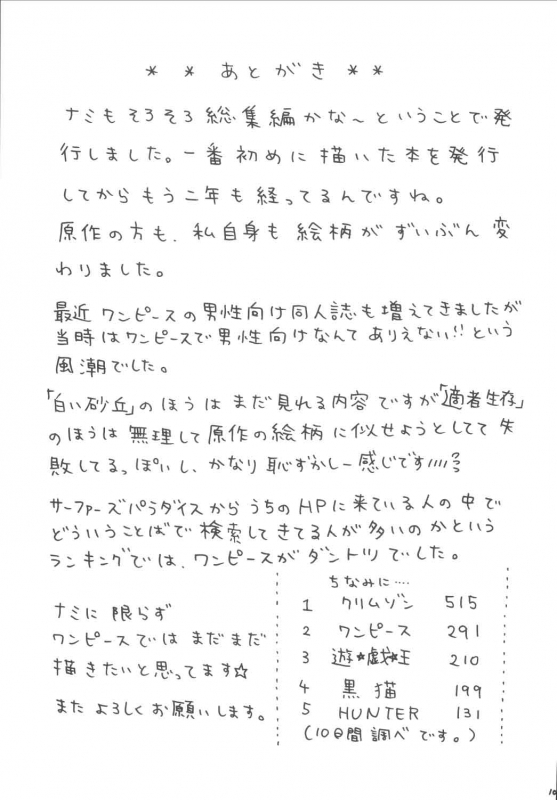 * * あとがき * *
ナミもそろそろ総集編かな〜ということで発
行しました。一番初めに描いた本を発行
してからもう二年も経ってるんですね。
原作の方も、私自身も絵柄がずいぶん変
わりました。
最近ワンピースの男性向け同人誌も増えてきましたが
当時はワンピースで男性向けなんてありえない!!という
風潮でした。
「白い砂丘」のほうはまだ見れる内容ですが「適者生存」
のほうは無理して原作の絵柄に似せようとしてて失
敗してるっぽいし、かなり恥ずかしー感じです////
サーファーズパラダイスからうちのHPに来ている人の中で
どういうことばで検索してきてる人が多いのかという
ランキングでは、ワンピースがダントツでした。
ナミに限らず
ワンピースではまだまだ
描きたいと思ってます☆
またよろしくお願いします。
ちなみに‥‥
1 クリムゾン 515
2 ワンピース 291
3 遊☆戯☆王 210
4 黒猫 199
5 HUNTER 131
(10日間調べです。)